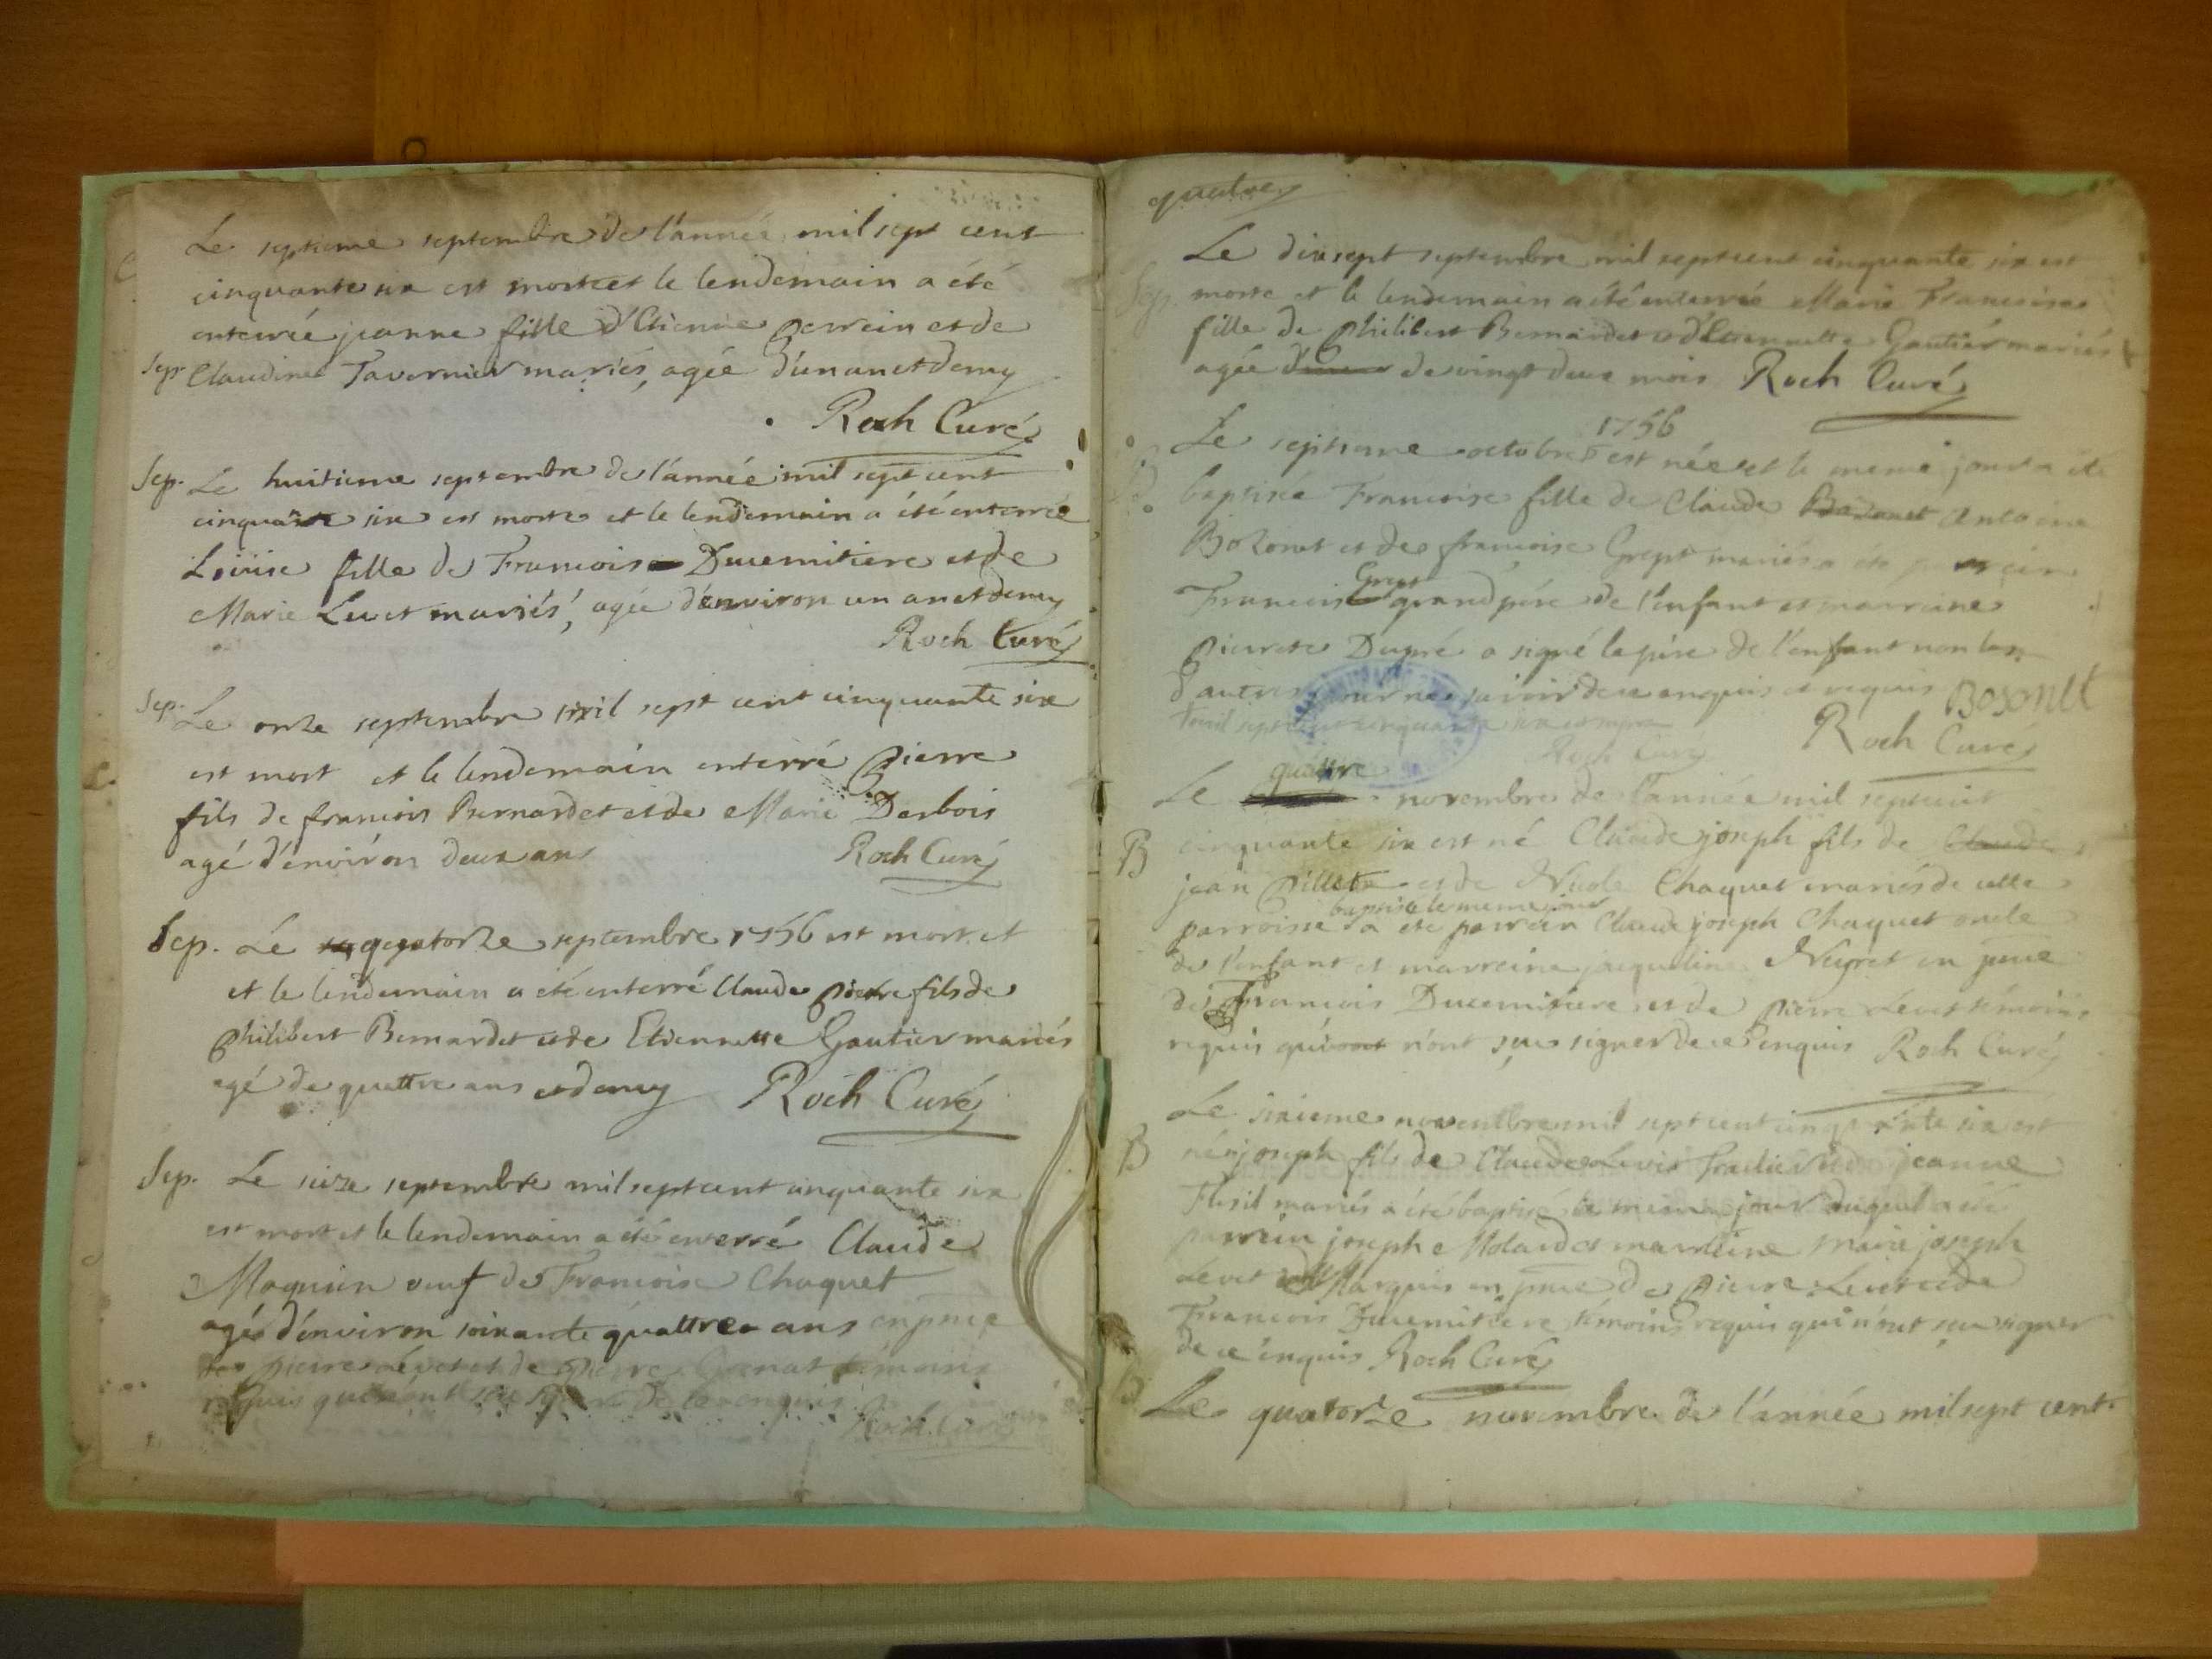 Le septieme septembre de l'année mil sept cent
cinquante six est morte et le lendemain a été
enterrée jeanne fille d'Etienne Perrein et de
Sep. Claudine Tavernier mariés, agée d'un an et demy
Roch Curé
Sep. Le huitieme septembre de l'année mil sept cent
cinquante six est morte et le lendemain a été enterrée
Loüise fille de Francois Ducemitiere et de
Marie Levet mariés, agée d'environ un an et demy
Roch Curé
Sep. Le onze septembre mil sept cent cinquante six
est mort et le lendemain enterré Pierre
fils de francois Bernardet et de Marie Desbois
agé d'environ deux ans Roch Curé
Sep. Le quatorze septembre 1756 est mort et
et le lendemain a été enterré Claude Pierre fils de
Philibert Bernardet et de Etiennette Gautier mariés
agé de quattre ans et demy Roch Curé
Sep. Le seize septembre mil sept cent cinquante six
est mort et le lendemain a été enterré Claude
Magnien veuf de Francoise Chaquet
agé d'environ soixante quattre ans en pnce
de pierre Levet et de pierre témoins
requis qui n'ont sçu signer de ce enquis
Roch Curé
quatre
Le dixsept septembre mil sept cent cinquante six est
Sep. morte et le lendemain a été enterrée Marie Francoise
fille de Philibert Bernardet et d'Etiennette Gautier mariés
agée de vingt deux mois Roch Curé
1756
Le septieme octobre est née et le meme jour a été
baptisée Francoise fille de Claude Antoine
Bozonet et de francoise Grept mariés a été parrein
Grept
Francois grand pére de l'enfant et marreine
Pierrete Dupré a signé le pére de l'enfant non les
autres pour ne sçavoir de ce enquis et requis Bozonet
mil sept cent cinquante six
Roch Curé Roch Curé
quattre
Le novembre de l'année mil sept cent
B cinquante six est né Claude joseph fils de Claude
jean Pillet et de Nicole Chaquet mariés de cette
baptisé le meme jour
parroisse a été parrein Claude joseph Chaquet oncle
de l'enfant et marreine jaqueline Neyret en pnce
de François Ducemitiere et de Pierre Levet témoins
requis qui n'ont sçu signer de ce enquis Roch Curé
Le sixieme novembre mil sept cent cinquante six est
B né joseph fils de Claude Levis et de jeanne
mariés a été baptisé le meme jour duquel a été
parrein joseph et marreine marie joseph
Levet Marquis en pnce de Pierre Levet et de
Francois Ducemitiere témoins requis qui n'ont sçu signer
de ce enquis Roch Curé
B Le quatorze novembre de l'année mil sept cent